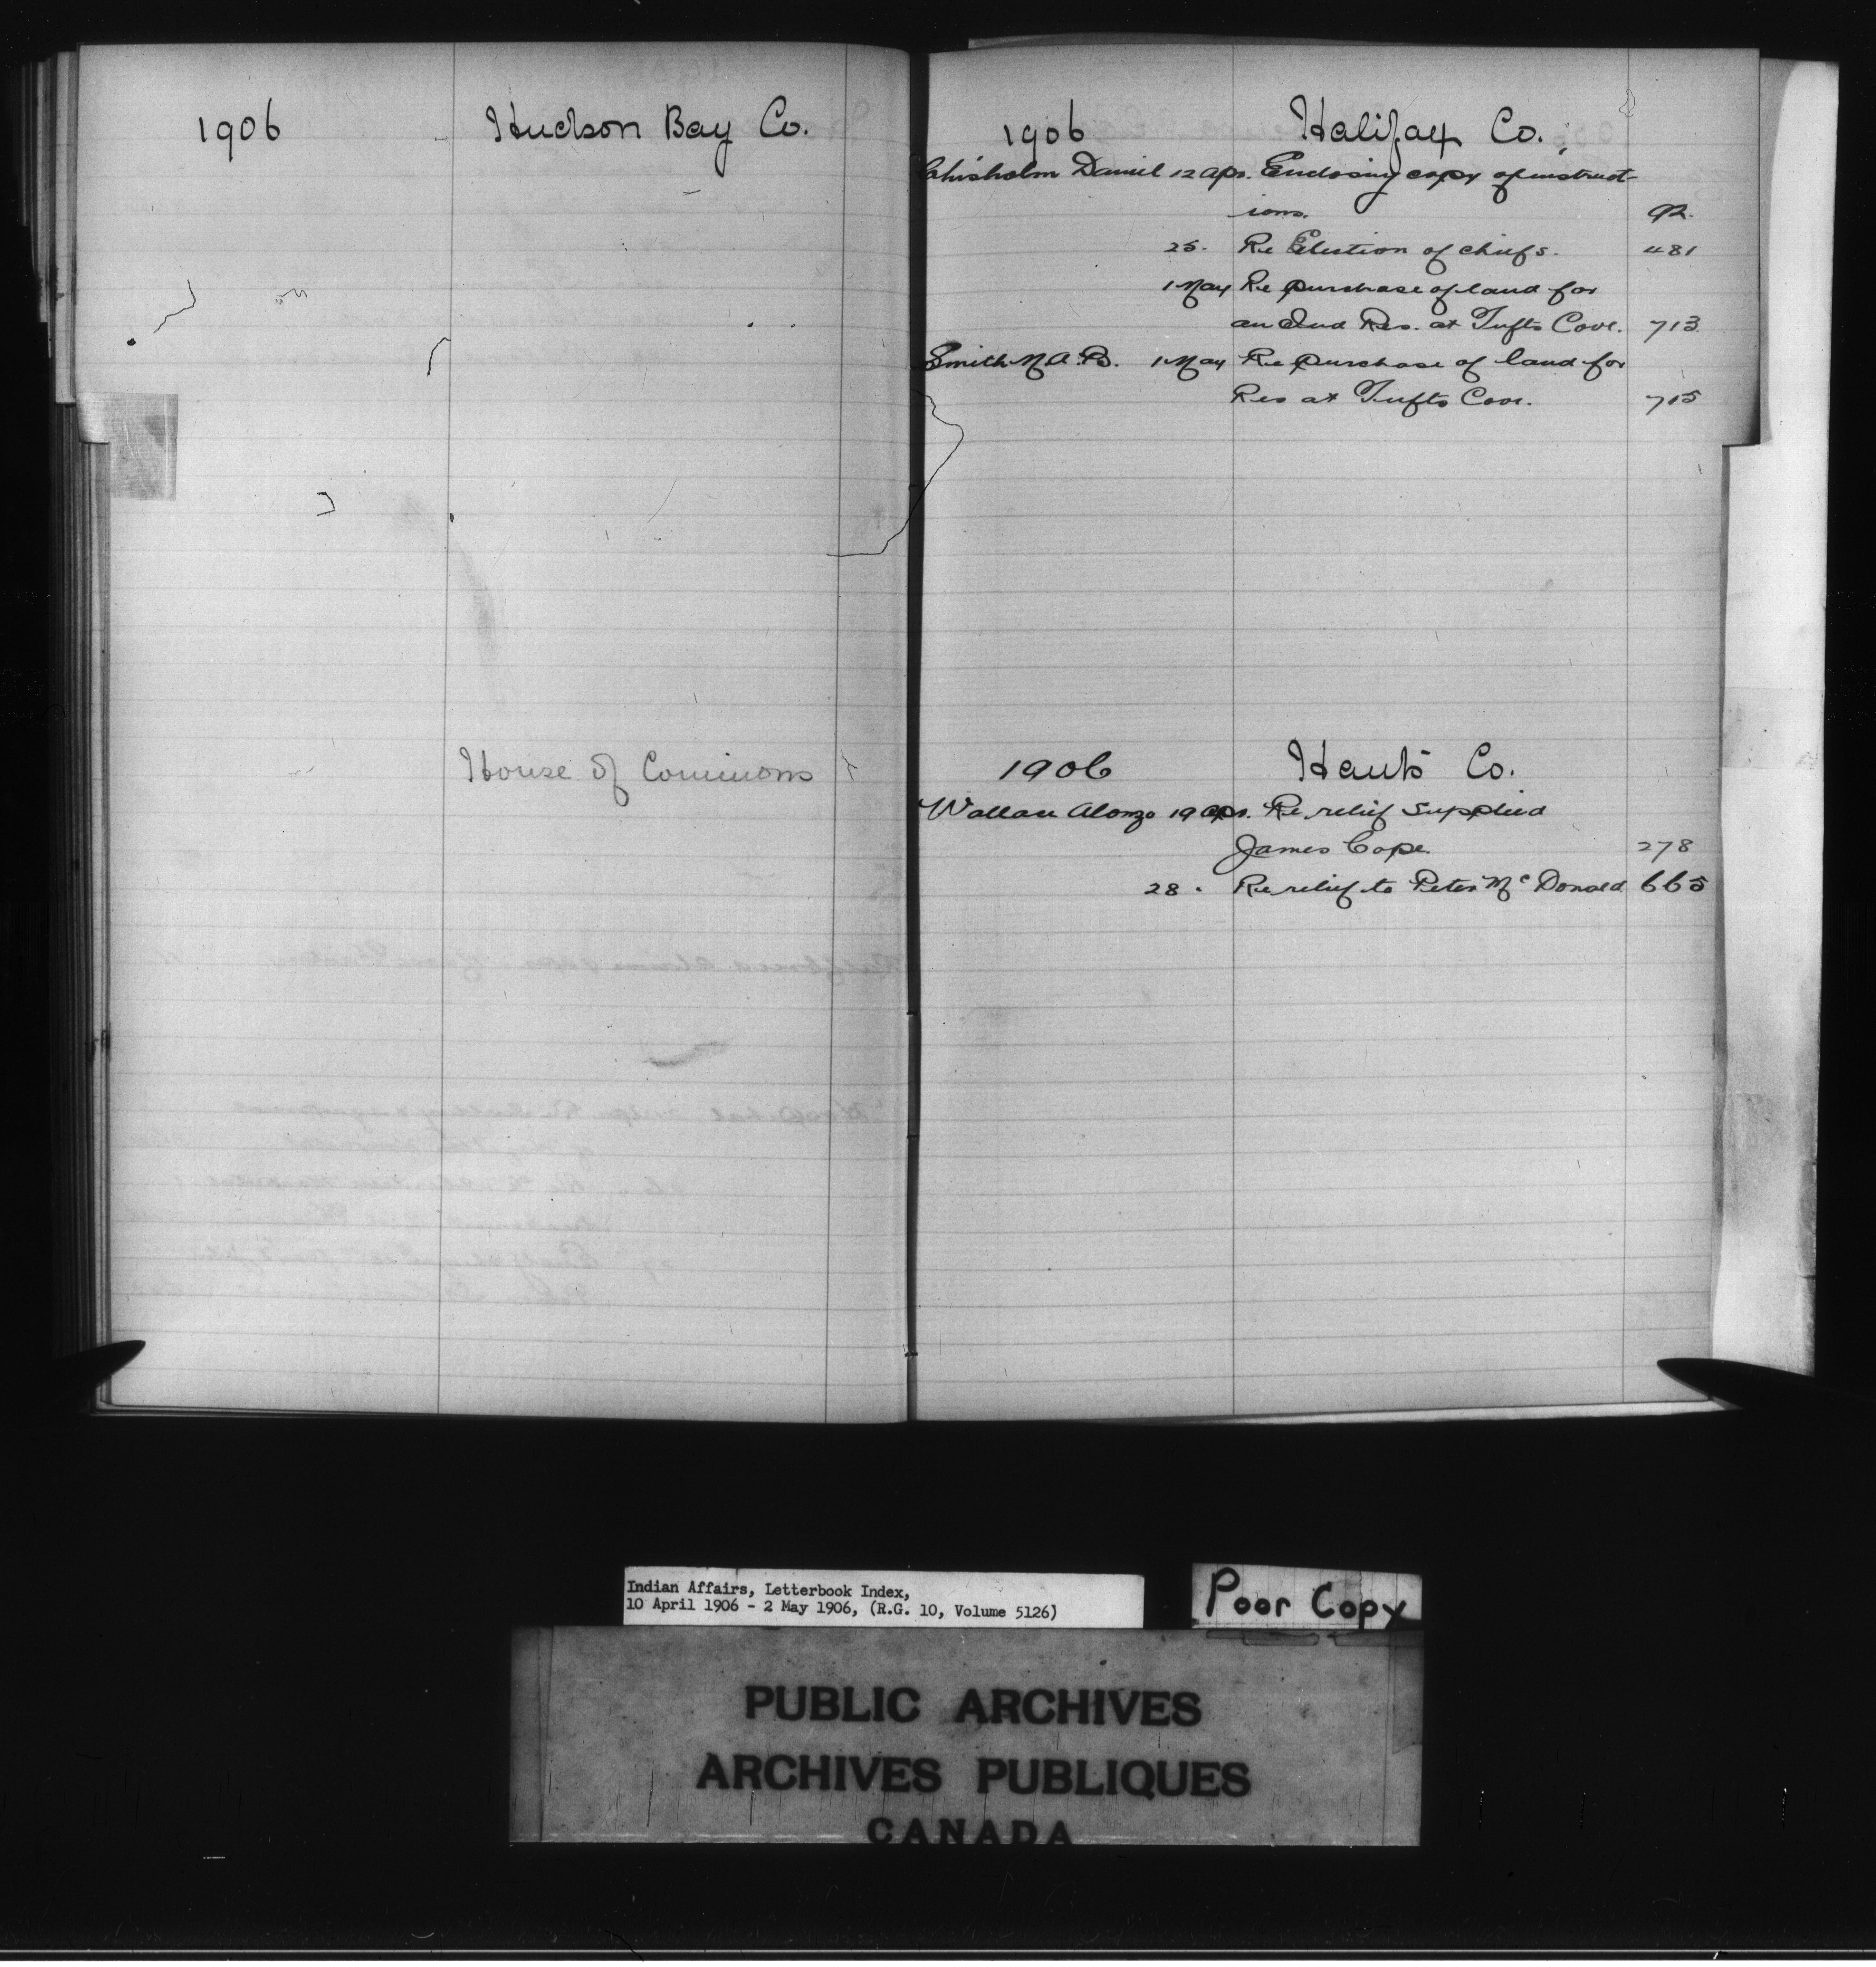 1906 Hudson Bay Co.
House of Commons
1906 Halifax Co.
Chisholm Daniel 12 Apr. Enclosing copy of instruct-
ions. 92.
25. Re Election of chiefs. 481
1 May Re purchase of land for
an Ind Res. at Tufts Cove. 713
Smith M.A.B. 1 May Re purchase of land for
Res at Tufts Cove. 715
1906 Hants Co.
Wallace Alonzo 19 Apr. Re relief supplied
James Cope. 278
28. Re relief to Peter McDonald 665
Indian Affairs, Letterbook Index,
10 April 1906 - 2 May 1906, (R.G. 10, Volume 5126)
Poor Copy
PUBLIC ARCHIVES
ARCHIVES PUBLIQUES
CANADA